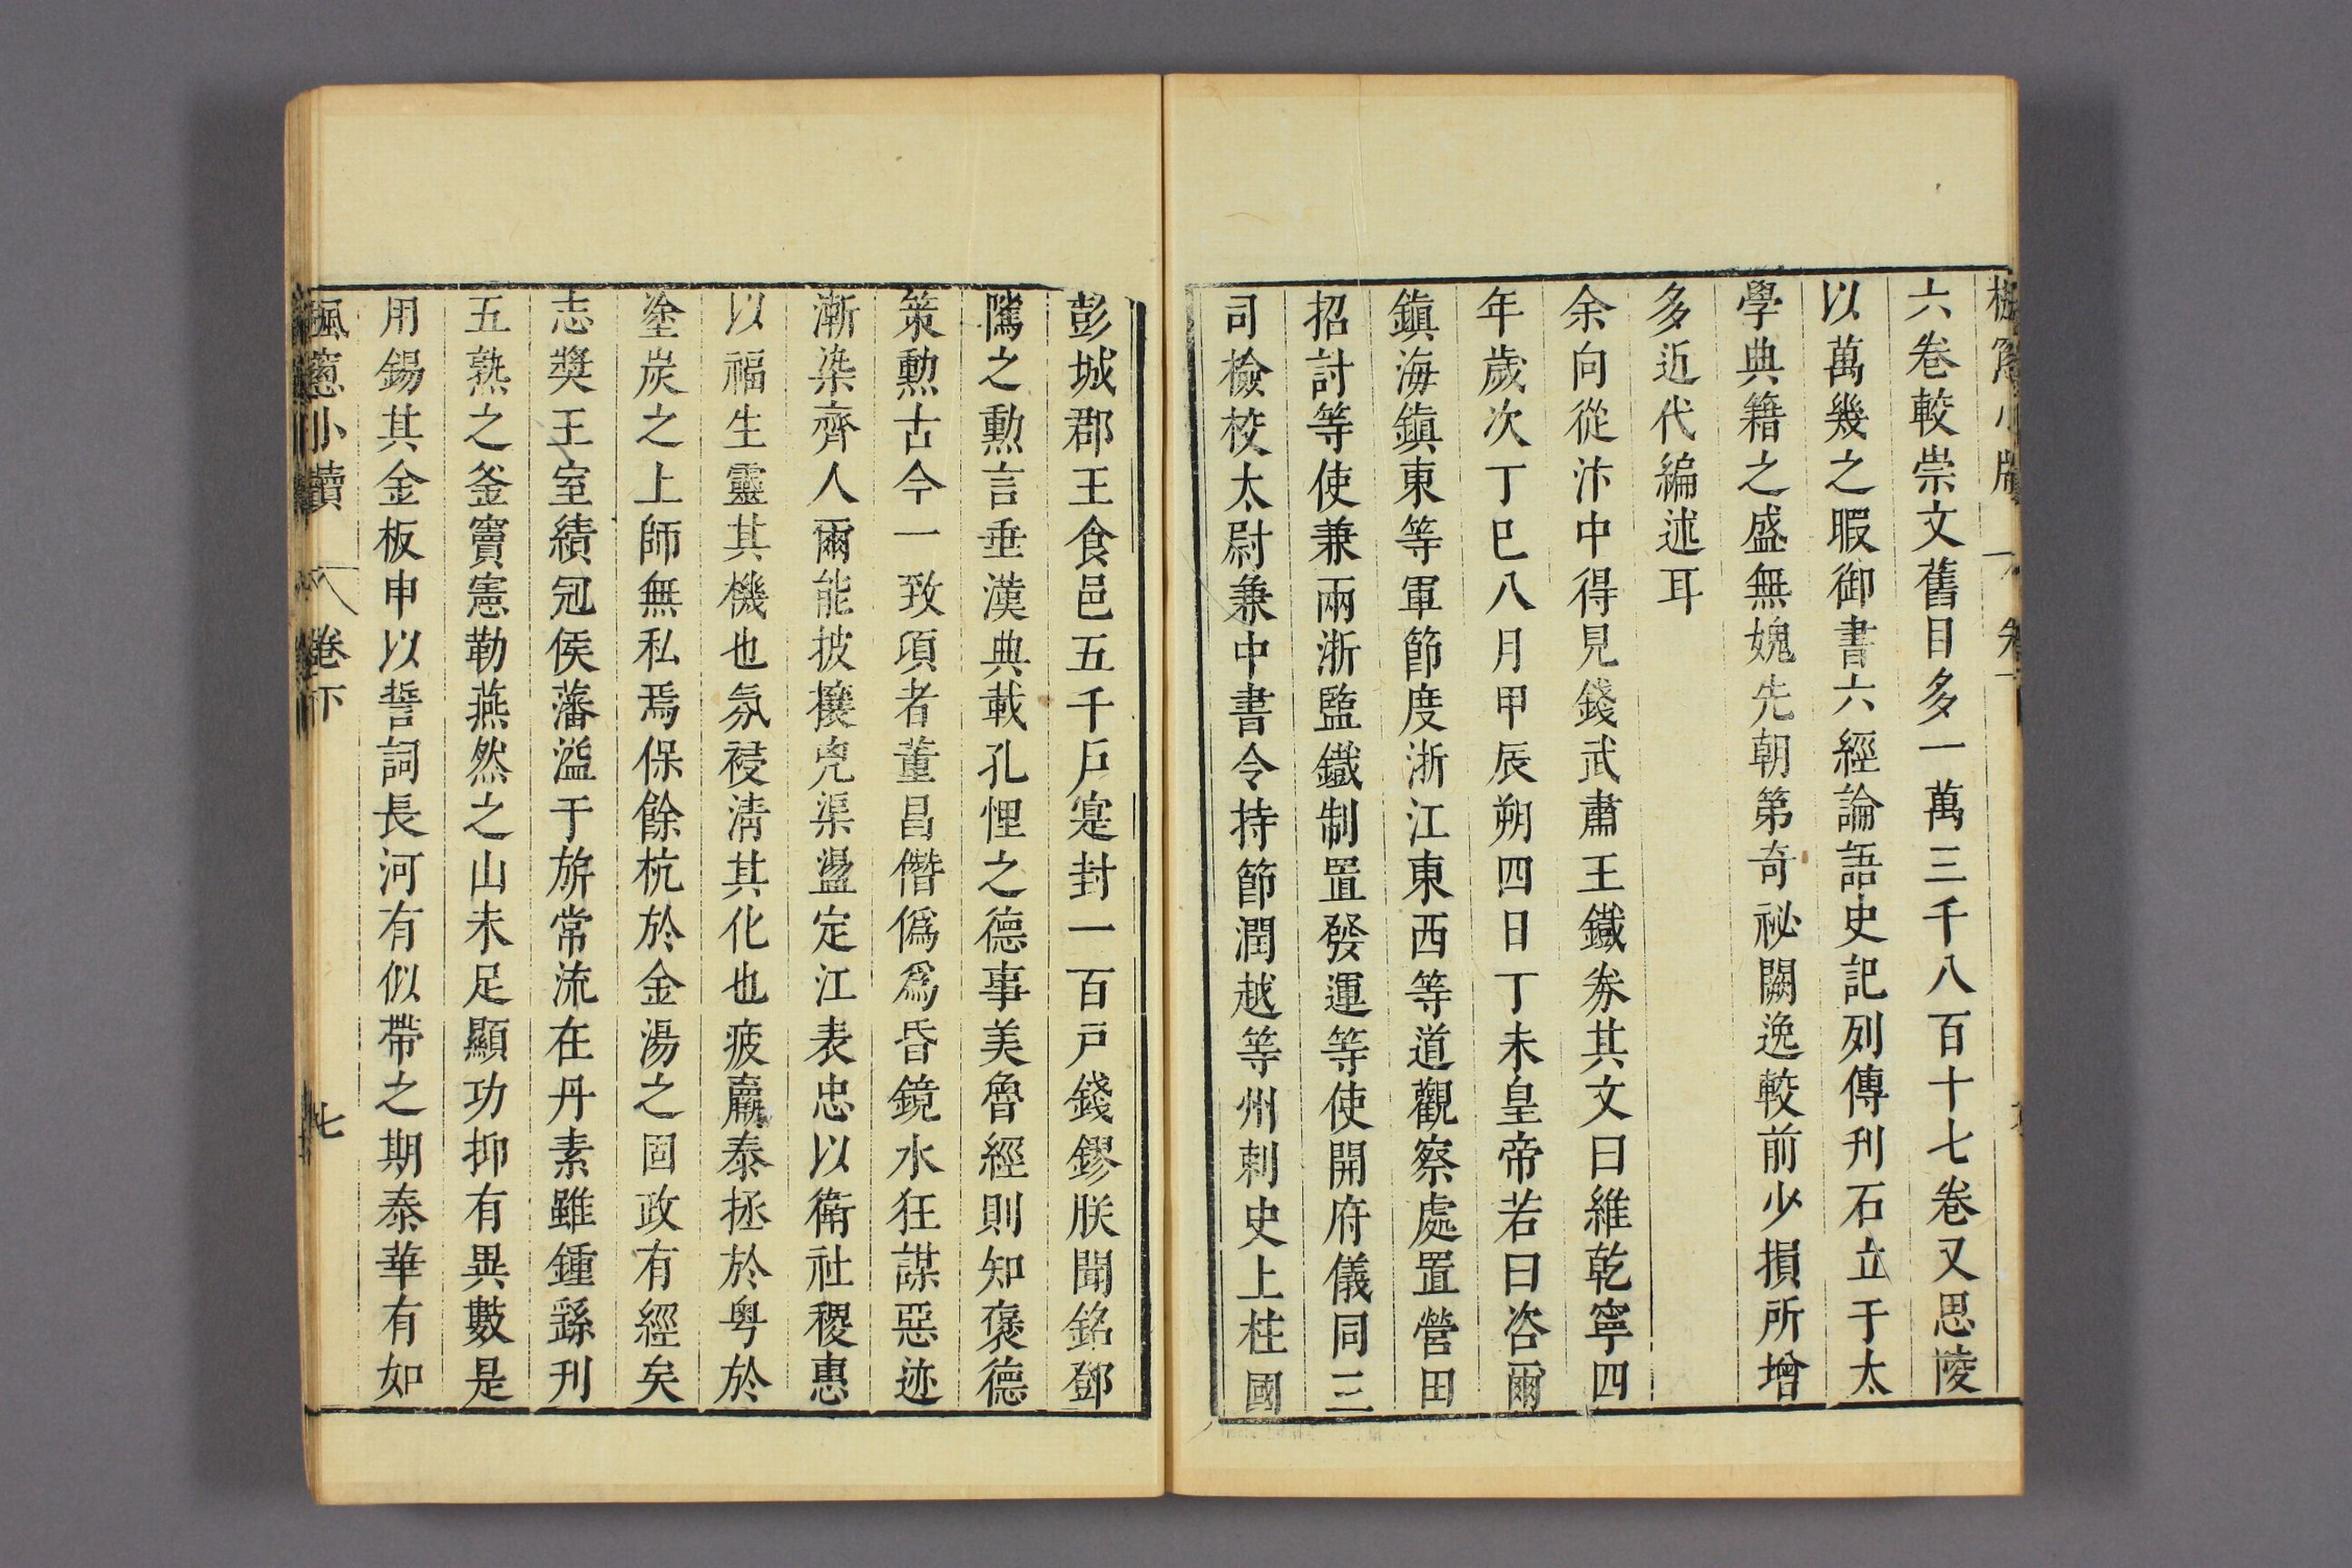 六卷較崇文舊目多一萬三千八百十七卷又思陵
以萬幾之暇御書六經論語史記列傳刊石立于太
學典籍之盛無媿先朝第奇祕闕逸較前少損所增
多近代編述耳
余向從汴中得見錢武肅王鐵券其文曰維乾寧四
年歲次丁巳八月甲辰朔四日丁未皇帝若曰咨爾
鎮海鎮東等軍節度浙江東西等道觀察處置營田
招討等使兼兩浙監鐵制置發運等使開府儀同三
司檢校太尉兼中書令持節潤越等州刺史上柱國
彭城郡王食邑五千戶寔封一百戶錢鏐朕聞銘鄧
隲之勳言垂漢典載孔悝之德事美魯經則知褒德
策勳古今一致項者董昌僭僞爲昏鏡水狂謀惡迹
漸染齊人爾能披攘兇渠盪定江表忠以衛社稷惠
以福生靈其機也氛祲清其化也疲羸泰拯於粤於
塗炭之上師無私焉保餘杭於金湯之固政有經矣
志奬王室績冠侯藩溢于旂常流在丹素雖鍾繇刊
五熟之釜竇憲勒燕然之山未足顯功抑有異數是
用錫其金板申以誓詞長河有似帶之期泰華有如
楓窻小牘 卷下 七